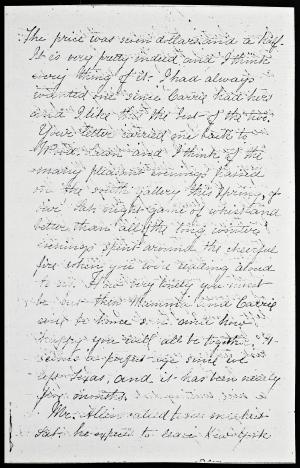 The price was seven dollars and a half.
It is very pretty indeed and I think
every thing of it. I had always
wanted one since Carrie had hers
and I like this the best of the two.
Your letter carried me back to
and I think of the
many pleasant evenings passed
on the south gallery this spring, of
our last night game of whist and
better than all the long winter
evenings spent around the cheerful
fire when you were reading aloud
to us. How very lonely you must
be but then Mamma and Carrie
are to be home and how
happy you will all be together. It
seems a perfect age since we
left Texas, and it has been nearly
five months.
Mr. Allen called to see us
he expects to leave New York